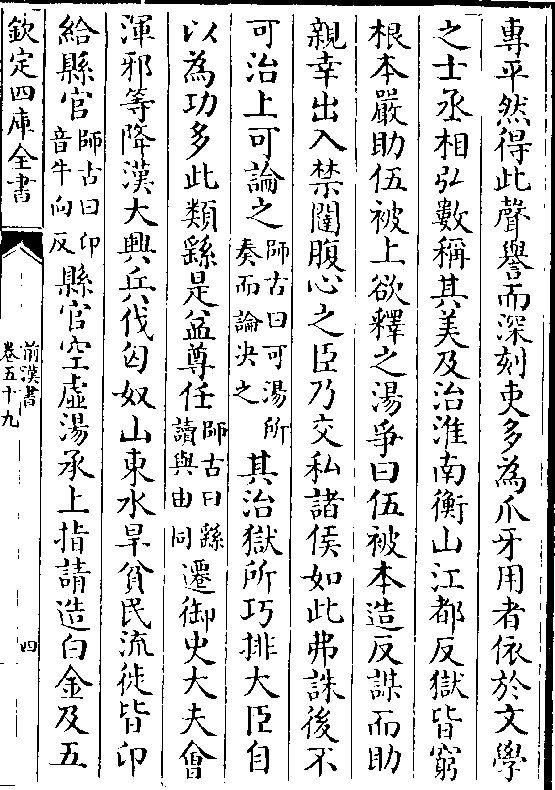 專平然得此聲譽而深刻吏多為爪牙用者依於文學
之士丞相弘數稱其美及治淮南衡山江都反獄皆窮
根本嚴助伍被上欲釋之湯爭曰伍被本造反謀而助
親幸出入禁闥腹心之臣乃交私諸侯如此弗誅後不
可治上可論之師古曰可湯所奏而論決之其治獄所巧排大臣自
以為功多此類繇是益尊任師古曰繇讀與由同遷御史大夫會
渾邪等降漢大興兵伐匈奴山東水旱貧民流徙皆卬
給縣官師古曰卬音牛向反縣官空虛湯承上指請造白金及五
欽定四庫全書
前漢書
卷五十九
四